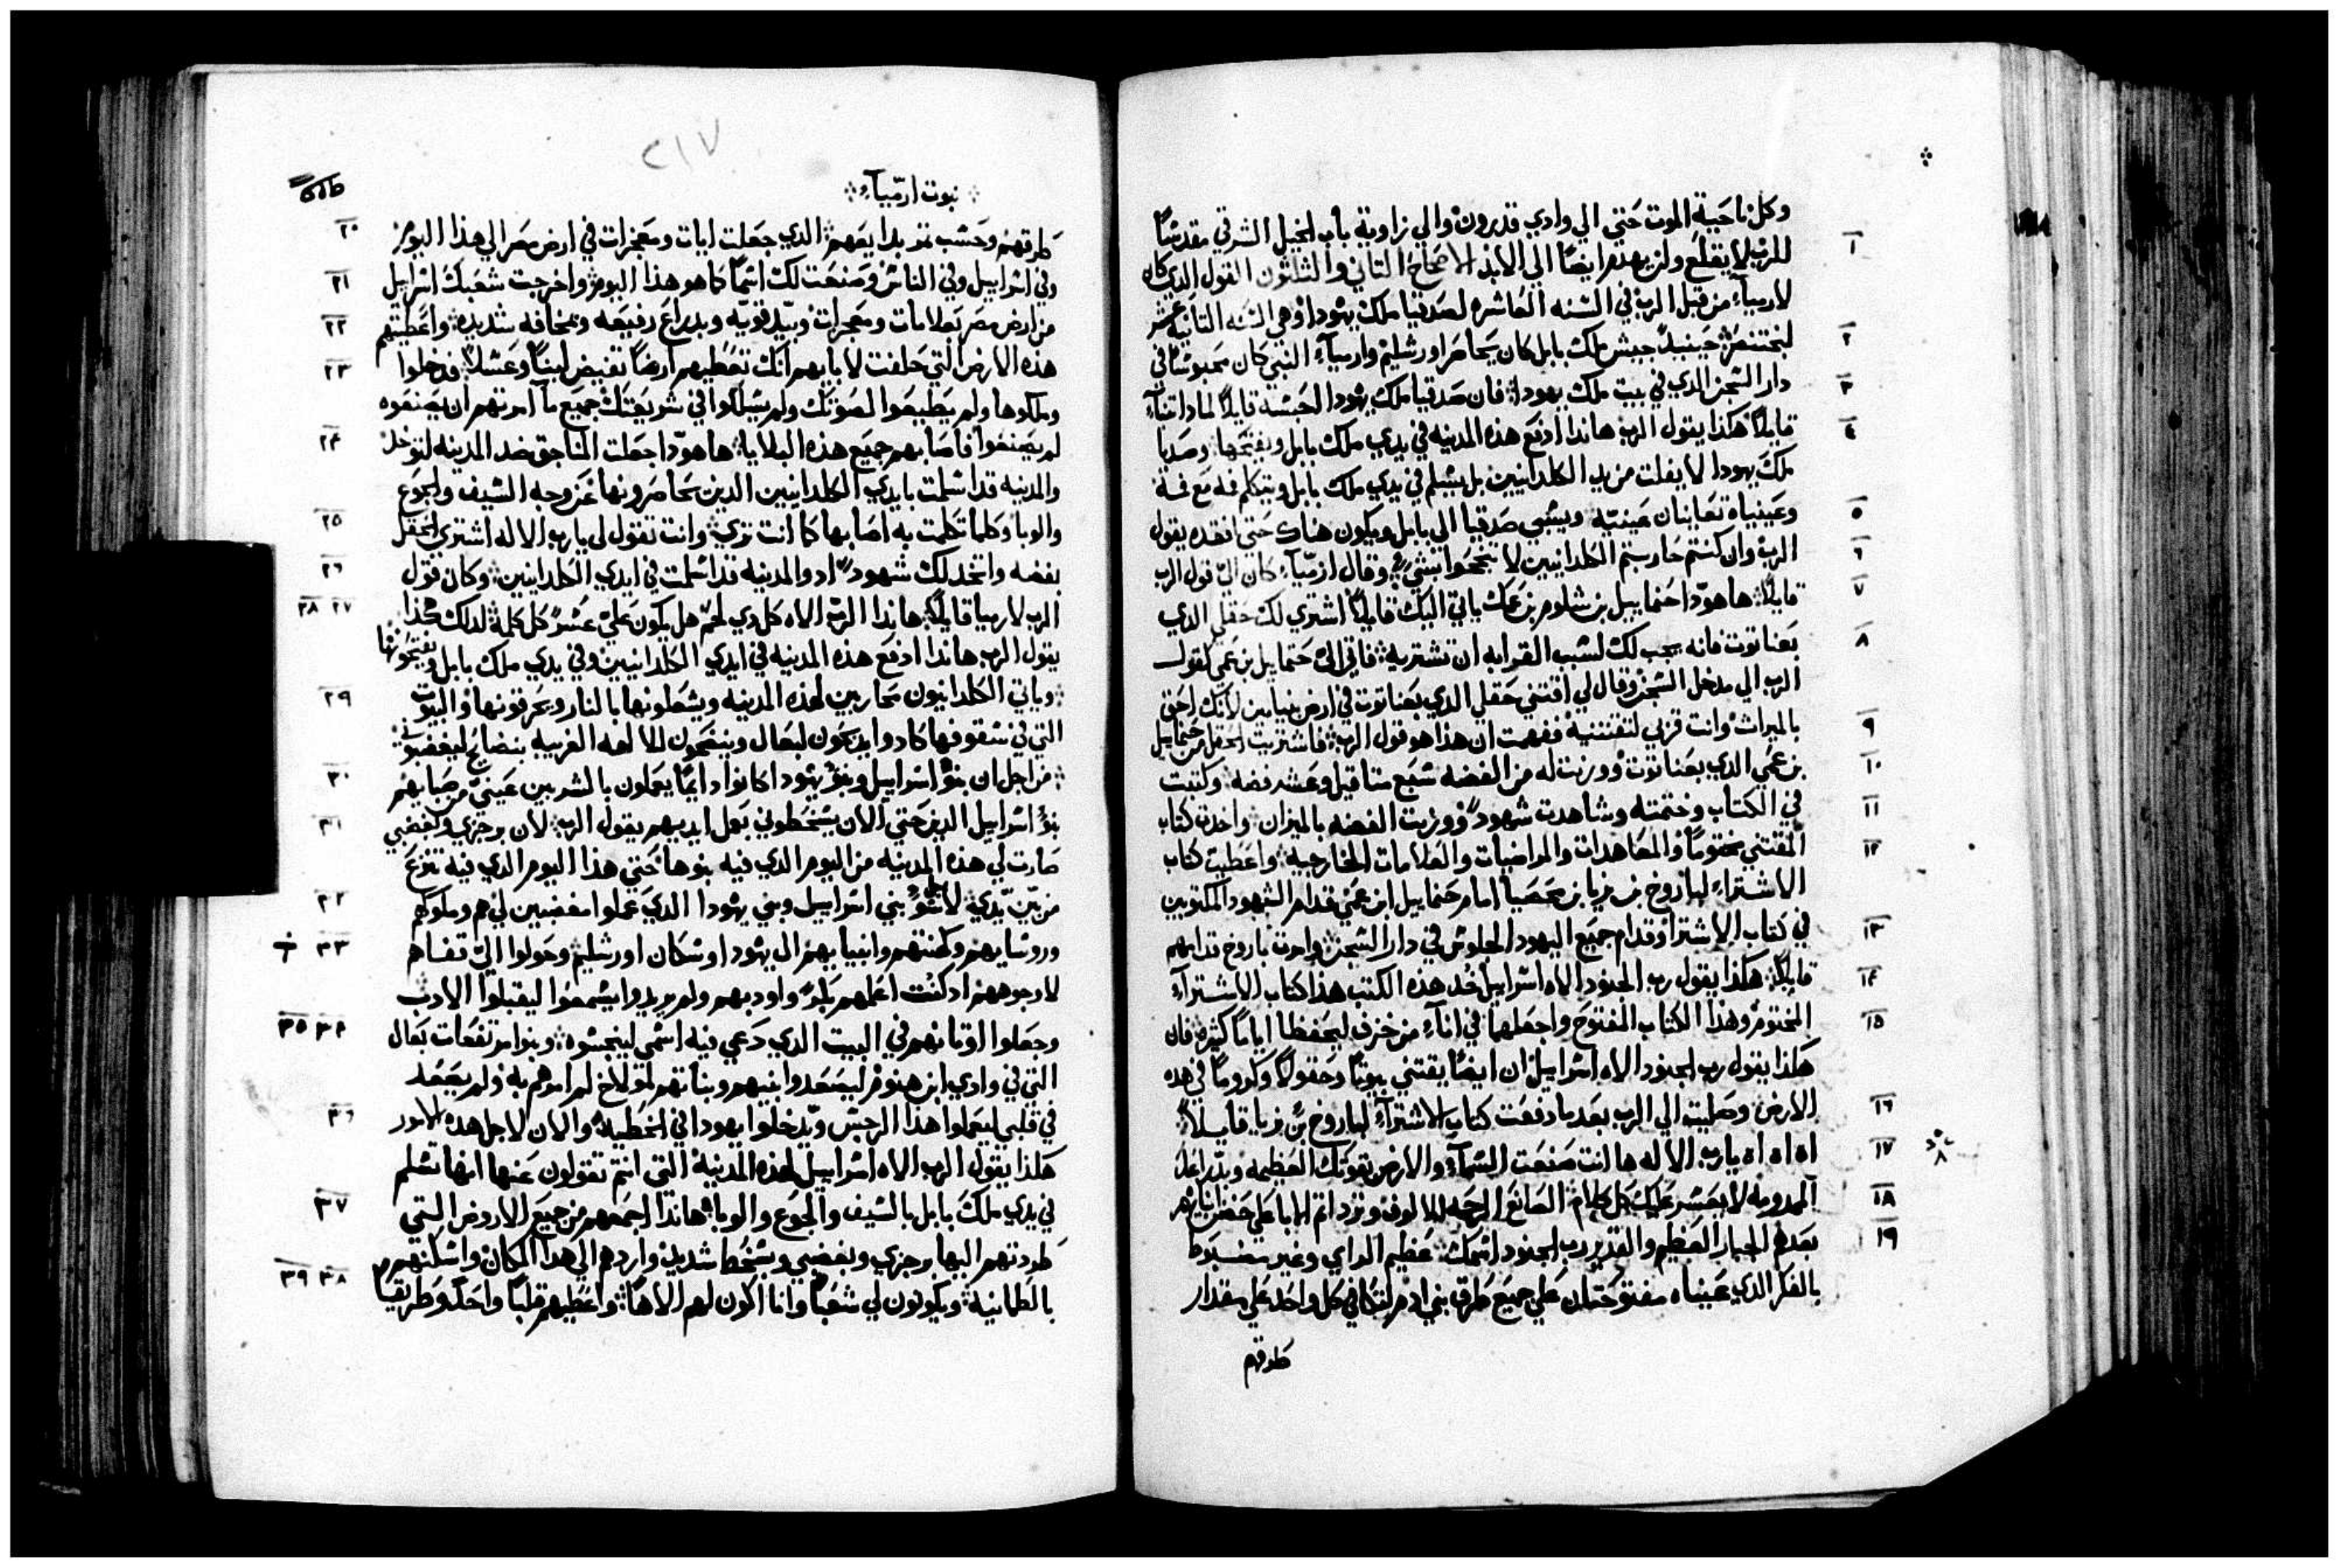 وكل ناحية الموت حتي الي وادي قدرون والي زاوية باب الخيل الشرقي مقدسًا
١
للرب لا يقلع ولن يهدم ايضًا الي الابد الاصحاح الثاني والثلثون القول الدي كان
لارميآء من قبل الرب في السنه العاشره لصدقيا ملك يهودا وهي السنه الثانية عشر
٢
لبختنصر حينيدً جيش ملك بابل كان يحاصر اورشليم وارميآء النبي كان محبوسًا في
٣
دار السجن الدي في بيت ملك يهودا فان صدقيا ملك يهودا الحبسه قايلًا لمادا تتنبآء
٤
قايلًا هكدا يقول الرب هاندا ادفع هذه المدينه في يدي ملك بابل ويفتحها وصدقيا
ملك يهودا لا يفلت من يد الكلدانيين بل يسلم في يدي ملك بابل ويتكلم فمه مع فمه
٥
وعينياه تعاينان عينيه ويسبي صدقيا الي بابل ويكون هناك حتي افقده يقول
٦
الرب وان كنتم حاربتم الكلدانيين لا تنجحوا بشي وقال ارميآء كان اليّ قول الرب
٧
قايلًا هاهودا حنماييل بن شلوم بن عمك ياتي اليك قايلًا اشتري لك حقلي الدي
٨
بعناتوت فانه يجب لك لسبب القرابه ان تشتريه فاتي اليّ حنماييل بن عمي كقول
الرب الي مدخل السجن وقال لي اقتني حقلي الدي بعناتوت في ارض بنيامين لانك احق
٩
بالميراث وانت قربي لتقتنيه ففهمت ان هدا هو قول الرب فاشتريت الحقل من حنماييل
١٠
بن عمي الدي بعناتوت ووزنت له من الفضه سبع مثاقيل وعشره فضه وكتبت
١١
في الكتاب وختمته وشاهدت شهودً ووزنت الفضه بالميزان واخدت كتاب
١٢
المقتني مختومًا والمعاهدات والمراضيات والعلامات الخارجية واعطيت كتاب
الاشترآء لباروخ بن نريا بن محصيا امام حنماييل ابن عمي قدام الشهود المكتوبين
١٣
في كتاب الاشترا وقدام جميع اليهود الجلوس في دار السجن وامرت باروخ قدامهم
١٤
قايلًا هكدا يقول رب الجنود الاه اسراييل خد هذه الكتب هدا كتاب الاشترآء
١٥
المختوم وهدا الكتاب المفتوح واجعلهما في انآء من خزف ليحفظا ايامًا كثيره فان
هكدا يقول رب الجنود الاه اسراييل ان ايضًا يقتني بيوتًا وحقولًا وكرومًا في هده
١٦
الارض وصليت الي الرب بعد ما دفعت كتاب الاشترآء لباروخ بن نريا قايلًا
١٧
اه اه اه يارب الاله ها انت صنعت السمآء والارض بقوتك العظيمه وبدراعك
١٨
الممدومه لا يعسر عليك كل كلام الصانع الرحمه للالوف وترد اتم الابا علي حضن ابنايهم
١٩
بعدهم الجبار العظيم والقدير رب الجنود اسمك عظيم الراي وغير متضبوط
بالفكر الدي عيناه مفتوحتان علي جميع طرق بني ادم لتكافي كل واحد علي مقدار
طرقهم
٢١٧
نبوت ارميآء
٢٠
طرقهم وحسب تدبدايعهم الدي جعلت ايات ومعجزات في ارض مصر الي هدا اليوم
٢١
وفي اسراييل وفي الناس وصنعت لك اسمًا كما هو هدا اليوم واخرجت شعبك اسراييل
٢٢
من ارض مصر بعلامات ومعجزات وبيد قويه وبدراع رفيعه وبمخافه شديده واعطيتهم
٢٣
هذه الارض التي حلفت لابايهم انك تعطيهم ارضًا تفيض لبنًا وعسلًا فدخلوا
وملكوها ولم يطيعوا لصوتك ولم يسلكوا في شريعتك جميع ما امرتهم ان يصنعوه
٢٤
لم يصنعوا فاصابهم جميع هذه البلايا هاهودا جعلت المناجق ضد المدينه لتوخد
والمدينه قد اسلمت بايدي الكلدانيين الدين يحاصرونها من وجه السيف والجوع
٢٥
والوبا وكلما تكلمت به اصابها كما انت تري وانت تقول لي يارب الاله اشتري الحقل
٢٦
بفضه واتخد لك شهود اد والمدينه قد اسلمت في ايدي الكلدانيين وكان قول
٢٧ ٢٨
الرب لارميا قايلًا هاندا الرب الاه كل دي لحم هل يكون عليّ عسرً كل كلمة لدلك هكدا
يقول الرب هاندا ادفع هذه المدينه في ايدي الكلدانيين وفي يدي ملك بابل ويفتحونها
٢٩
وياتي الكلدانيون محاربين لهذه المدينه ويشعلونها بالنار ويحرقونها والبيوت
التي في سقوفها كادوا يدبحون لبعال وينضحون للالهه الغريبه بنضايح ليغضبوني
٣٠
من اجل ان بنو اسراييل وبنو يهودا كانوا دايمًا يعملون بالشر بين عيني من صبايهم
٣١
بنو اسراييل الدين حتي الان يسخطوني بعمل ايديهم يقول الرب لان برجزي وبغضبي
صارت لي هذه المدينه من اليوم الدي فيه بنوها حتي هدا اليوم الدي فيه تنزع
٣٢
من بين يدي لاسو بني اسراييل وبني يهودا الدي عملوا مغضبين لي هم وملوكهم
٣٣
وروسايهم وكهنتهم وانبيايهم ال يهودا وسكان اورشليم وحولوا اليّ قفاهم
لا وجوههم ادكنت اعلمهم بكرً واودبهم ولم يريدوا يسمعوا ليقبلوا الادب
٣٤ ٣٥
وجعلوا اوتانهم في البيت الدي دعي فيه اسمي لينجسوه وبنوا مرتفعات بعال
التي في وادي ابن هنوم ليصعدوا بنيهم وبناتهم لمولاخ لم امرهم به ولم يصعد
٣٦
في قلبي ليعملوا هدا الرجس ويدخلوا يهودا في الخطيه والان لاجل هده الامور
هكدا يقول الرب الاه اسراييل لهذه المدينه التي انتم تقولون عنها انها تسلم
٣٧
في يدي ملك بابل بالسيف والجوع والوبا هاندا اجمعهم من جميع الاروض التي
طردتهم اليها برجزي وبغضبي وبسخط شديد واردهم الي هدا المكان واسكنهم
٣٨ ٣٩
بالطمانيه ويكونون لي شعبًا وانا اكون لهم الاهًا واعطيهم قلبًا واحدً وطريقًا